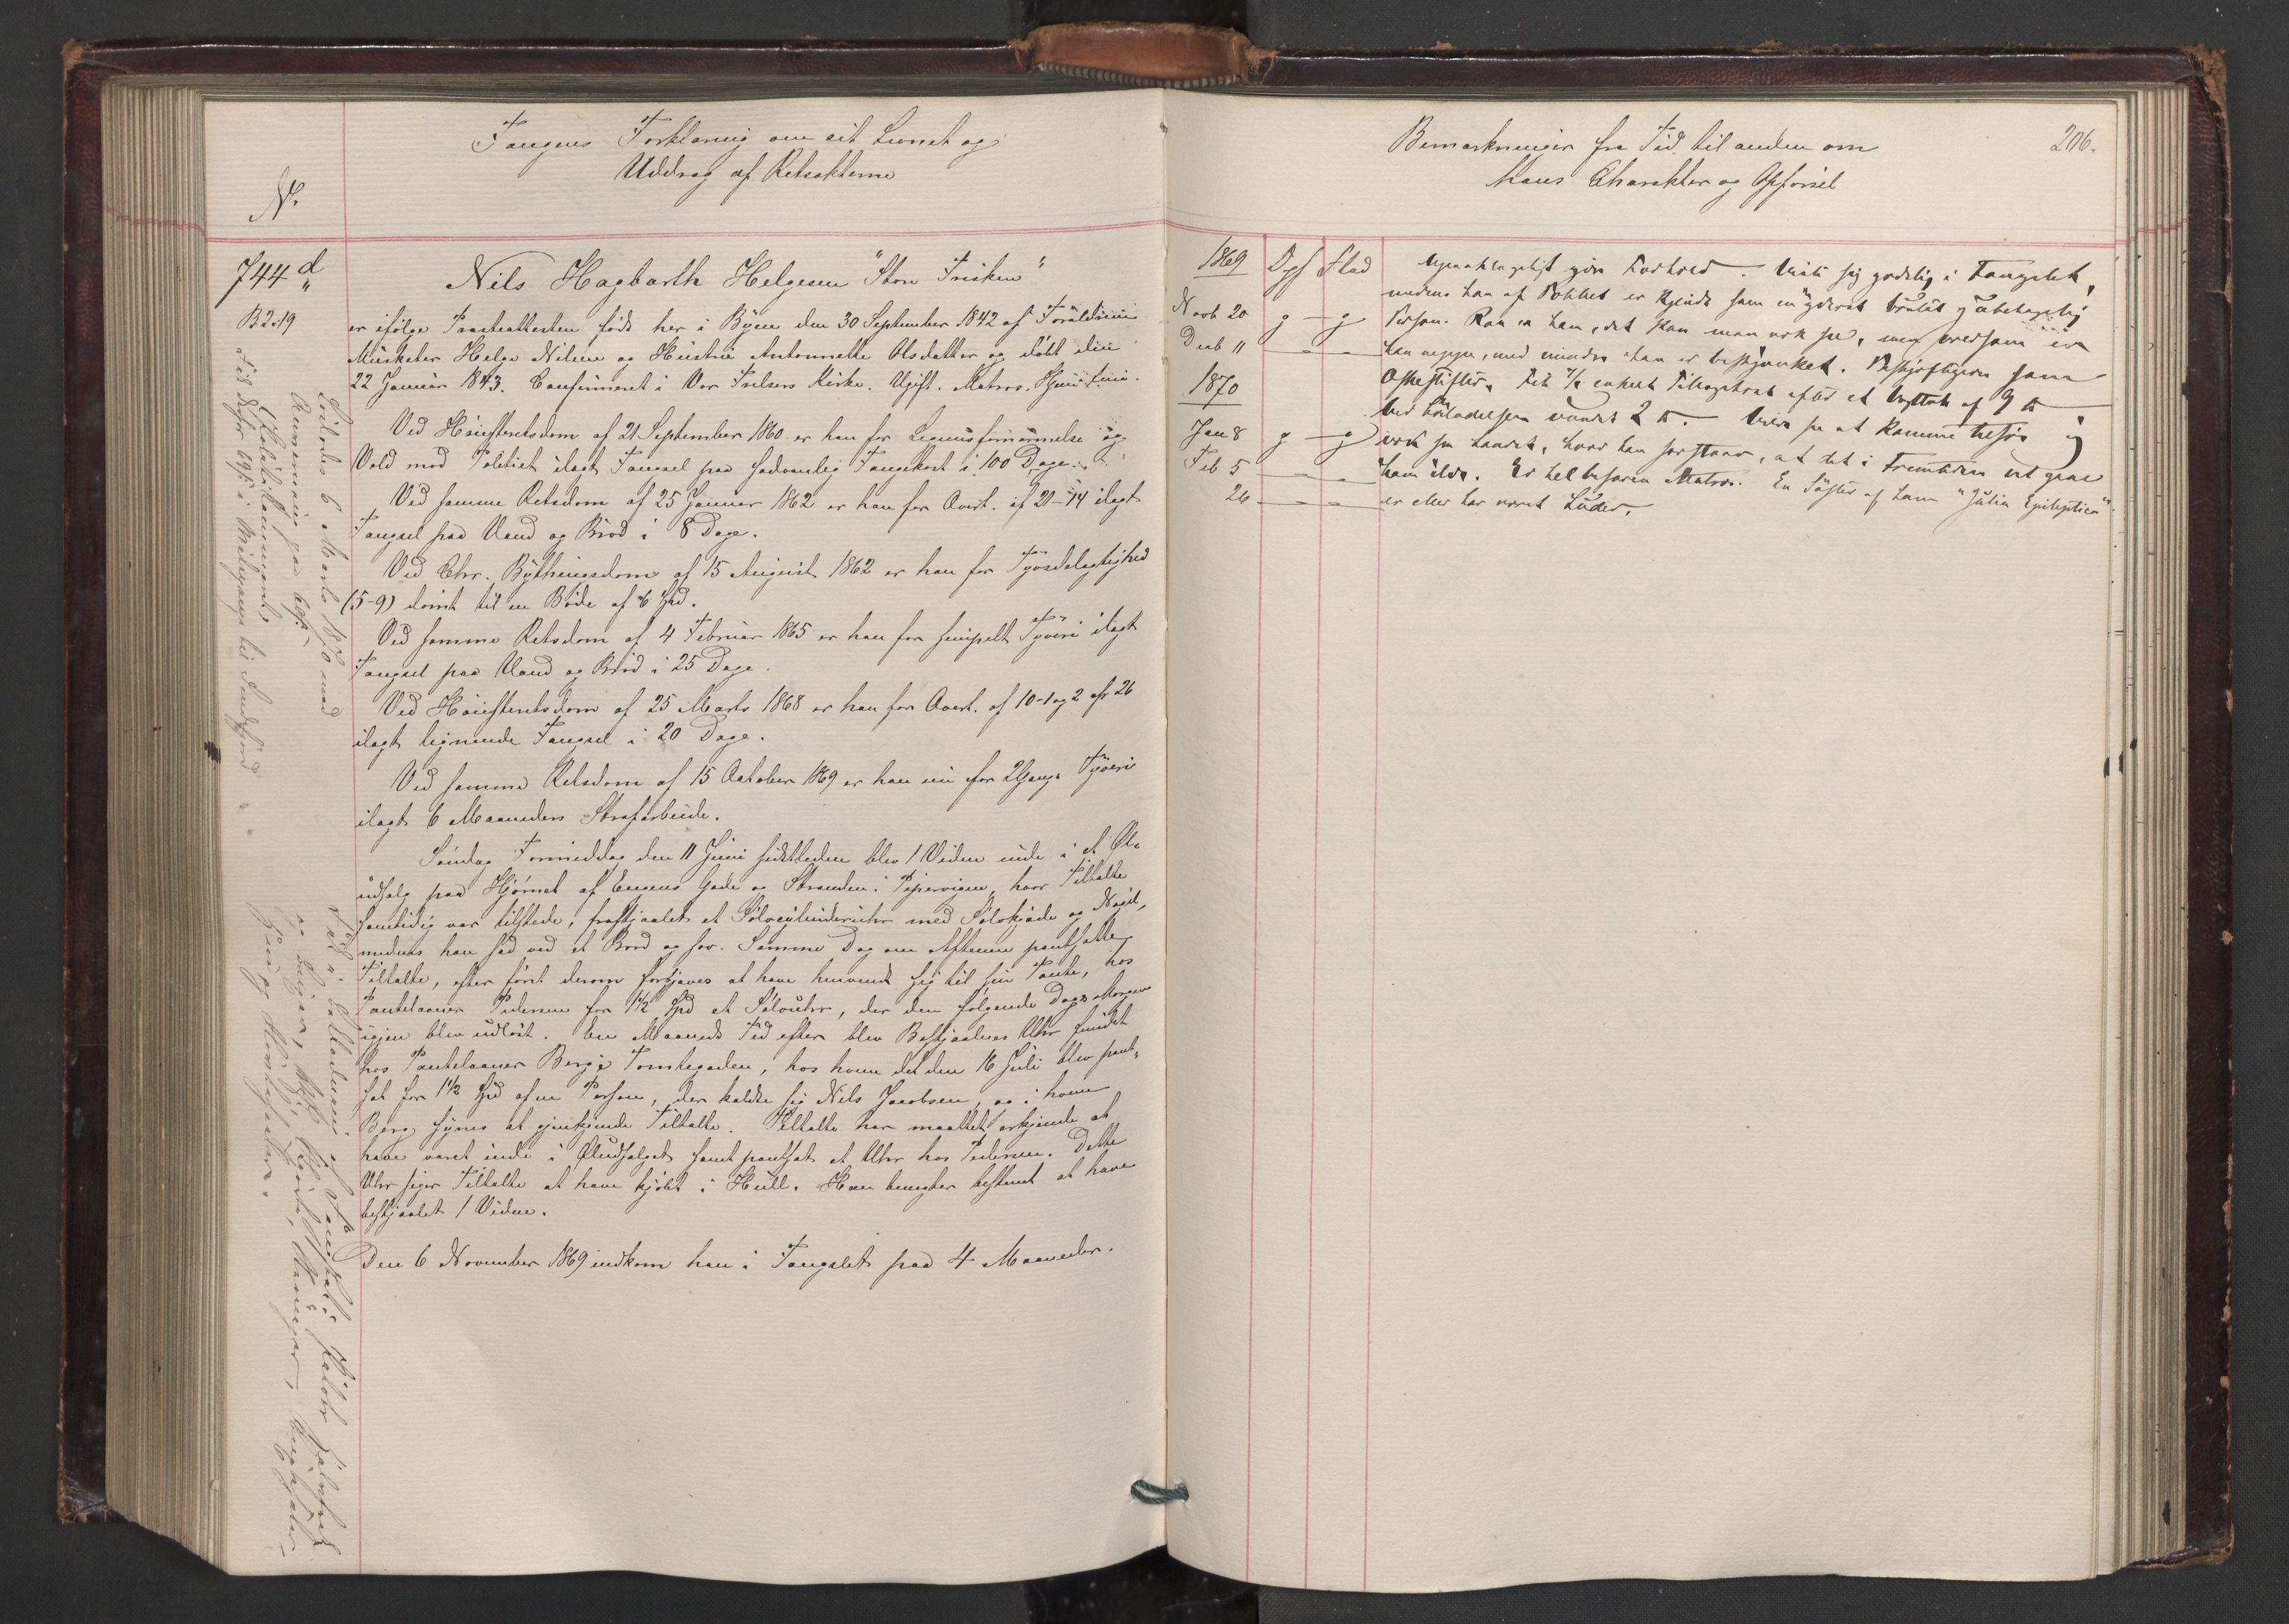 Fangens Forklaring om sit Levnet og
Uddrag af Retsakterne
No.
744 d
B 2.19
Nils Hagbarth Helgesen "Store Frisken"
er ifølge Præsteattesten født her i Byen den 30 September 1842 af Forældrene
Musketer Helge Nilsen og Hustru Antonnette Olsdatter og døbt den
22 Januar 1843. Confirmeret i Vor Frelsers Kirke. Ugift. Matros. Hjem
Ved Høiesteretsdom af 21 September 1860 er han for Legemsfornærmelse og
Vold mod Politiet ilagt Fængsel paa sædvanlig Fangekost i 100 Dage.
Ved samme Retsdom af 25 Januar 1862 er han for Overt. af 21-14 ilagt
Fængsel paa Vand og Brød i 8 Dage.
Ved Chr. Bythingsdom af 15 August 1862 er han for Tyvsdelagtighed
(5-9) dømt til en Bøde af 6 Spd.
Ved samme Retsdom af 4 Februar 1865 er han for simpelt Tyveri ilagt
Fængsel paa Vand og Brød i 25 Dage.
Ved Høiesteretsdom af 25 Marts 1868 er han for Overt. af 10-1 og 2 cfr 26
ilagt lignende Fængsel i 20 Dage.
Ved samme Retsdom af 15 October 1869 er han nu for 2 Gange Tyveri
ilagt 6 Maaneders Strafarbeide.
Søndag Formiddag den 11 Juni sidstleden blev 1 Vidne inde i et Øl-
udsalg paa Hjørnet af Enguns Gade og Stranden i Pipervigen, hvor Tiltalte
samtidig var tilstede, frastjaalet et Sølvcylinderuhr med Sølvkjæde og Nøgel,
medens han sad ved et Bord og sov. Samme Dag om Aftenen pantsatte
Tiltalte, efter først derom forgjæves at have henvendt sig til sin Tante, hos
Pantelaaner Pedersen for 1½ Spd et Sølvuhr, der den følgende Dags Morgen
igjen blev udløst. En Maaneds Tid efter blev Bestjaalnes Uhr fundet
hos Pantelaaner Berg i Tomtegaden, hos hvem det den 16 Juli blev pant-
sat for 1½ Spd af en Person, der kaldte sig Nils Jacobsen, og i hvem
Berg synes at gjenkjende Tiltalte. Tiltalte har maattet erkjende at
have været inde i Øludsalget samt pantsat et Uhr hos Pedersen. Dette
Uhr siger Tiltalte at have kjøbt i Hull. Han benegter bestemt at have
bestjaalet 1 Vidne.
Den 6 November 1869 indkom han i Fængslet paa 4 Maaneder.
Løslades 6 Marts 1870 med
Bemærkninger fra Tid til anden om
hans Charakter og Opførsel
206.
1869 Opf Flid
Novb 20 g - g
Decb 11 - -
1870
Jan 8 g - g
Feb 5 - -
26 - -
Upaaklageligt godt Forhold. Viste sig godslig i Fængslet,
medens han af Politiet er kjendt som en yderst brutal og ubehagelig
Person. Raa er han, det kan man nok se, men voldsom er
han neppe, med mindre han er beskjænket. Beskjæftiget som
ved Løsladelsen vundet 2 ℔. at komme tilsøs og
ikke se Landet, hvor han forstaar, at det i Fremtiden vil gaae
ham ilde. Er helbefaren Matros. En Søster af ham "Julia Epileptica"
er eller har været Luder.